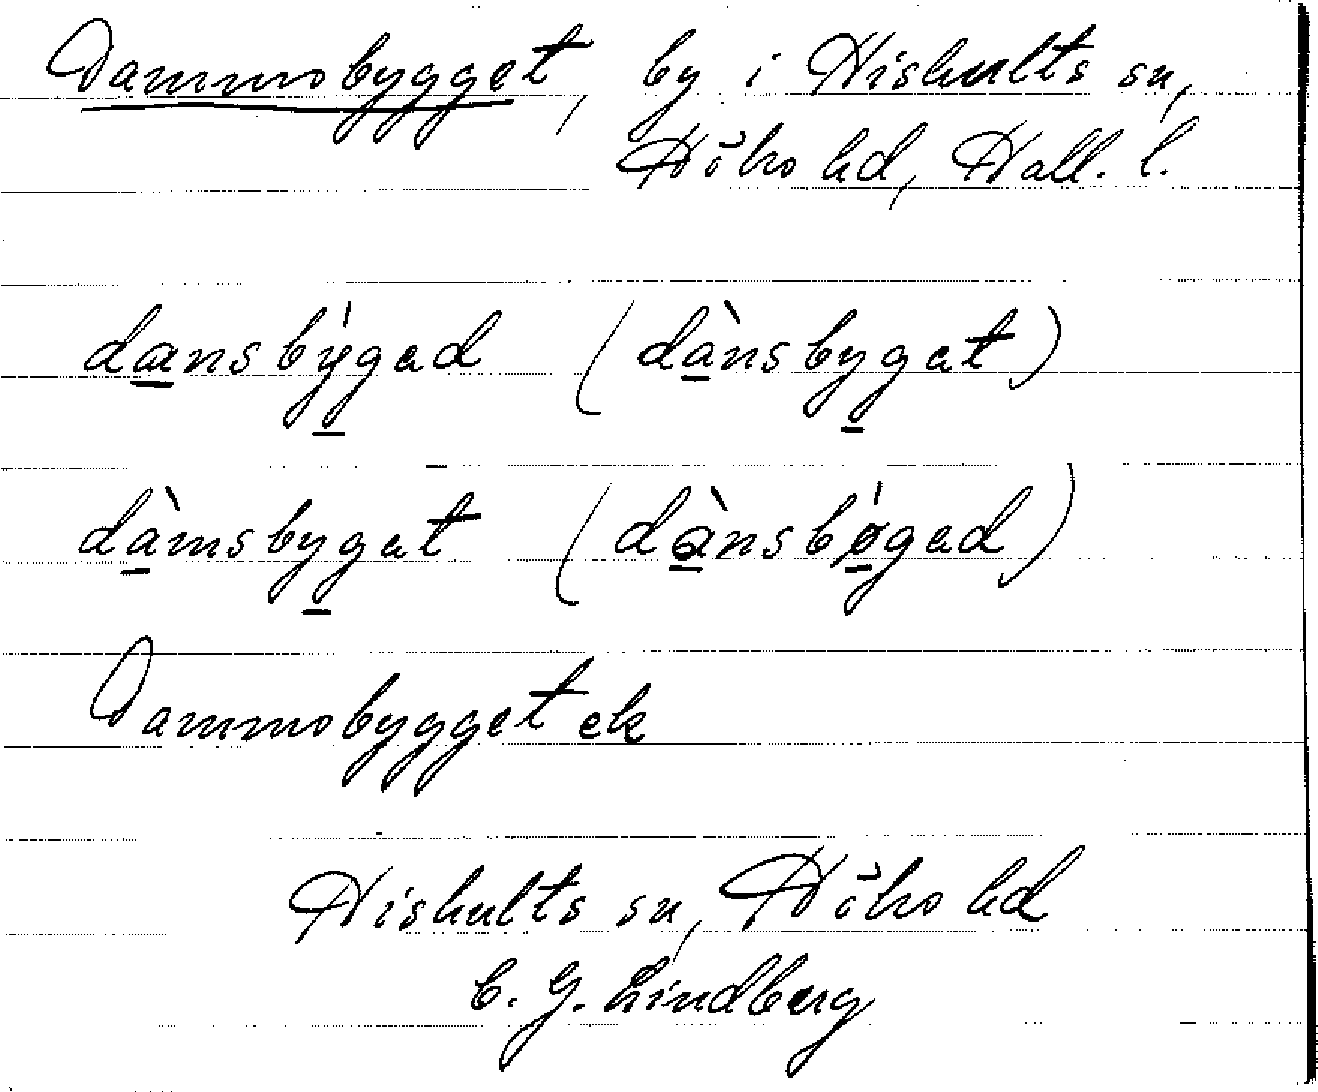 Dammsbygget, by i Hishults sn,
Höks hd, Hall. l.
dansby̍gad (dànsbygat)
dàmsbygat (dànsbø̍gad)
Dammsbygget ek
Hishults sn, Höks hd
C. G. Lindberg